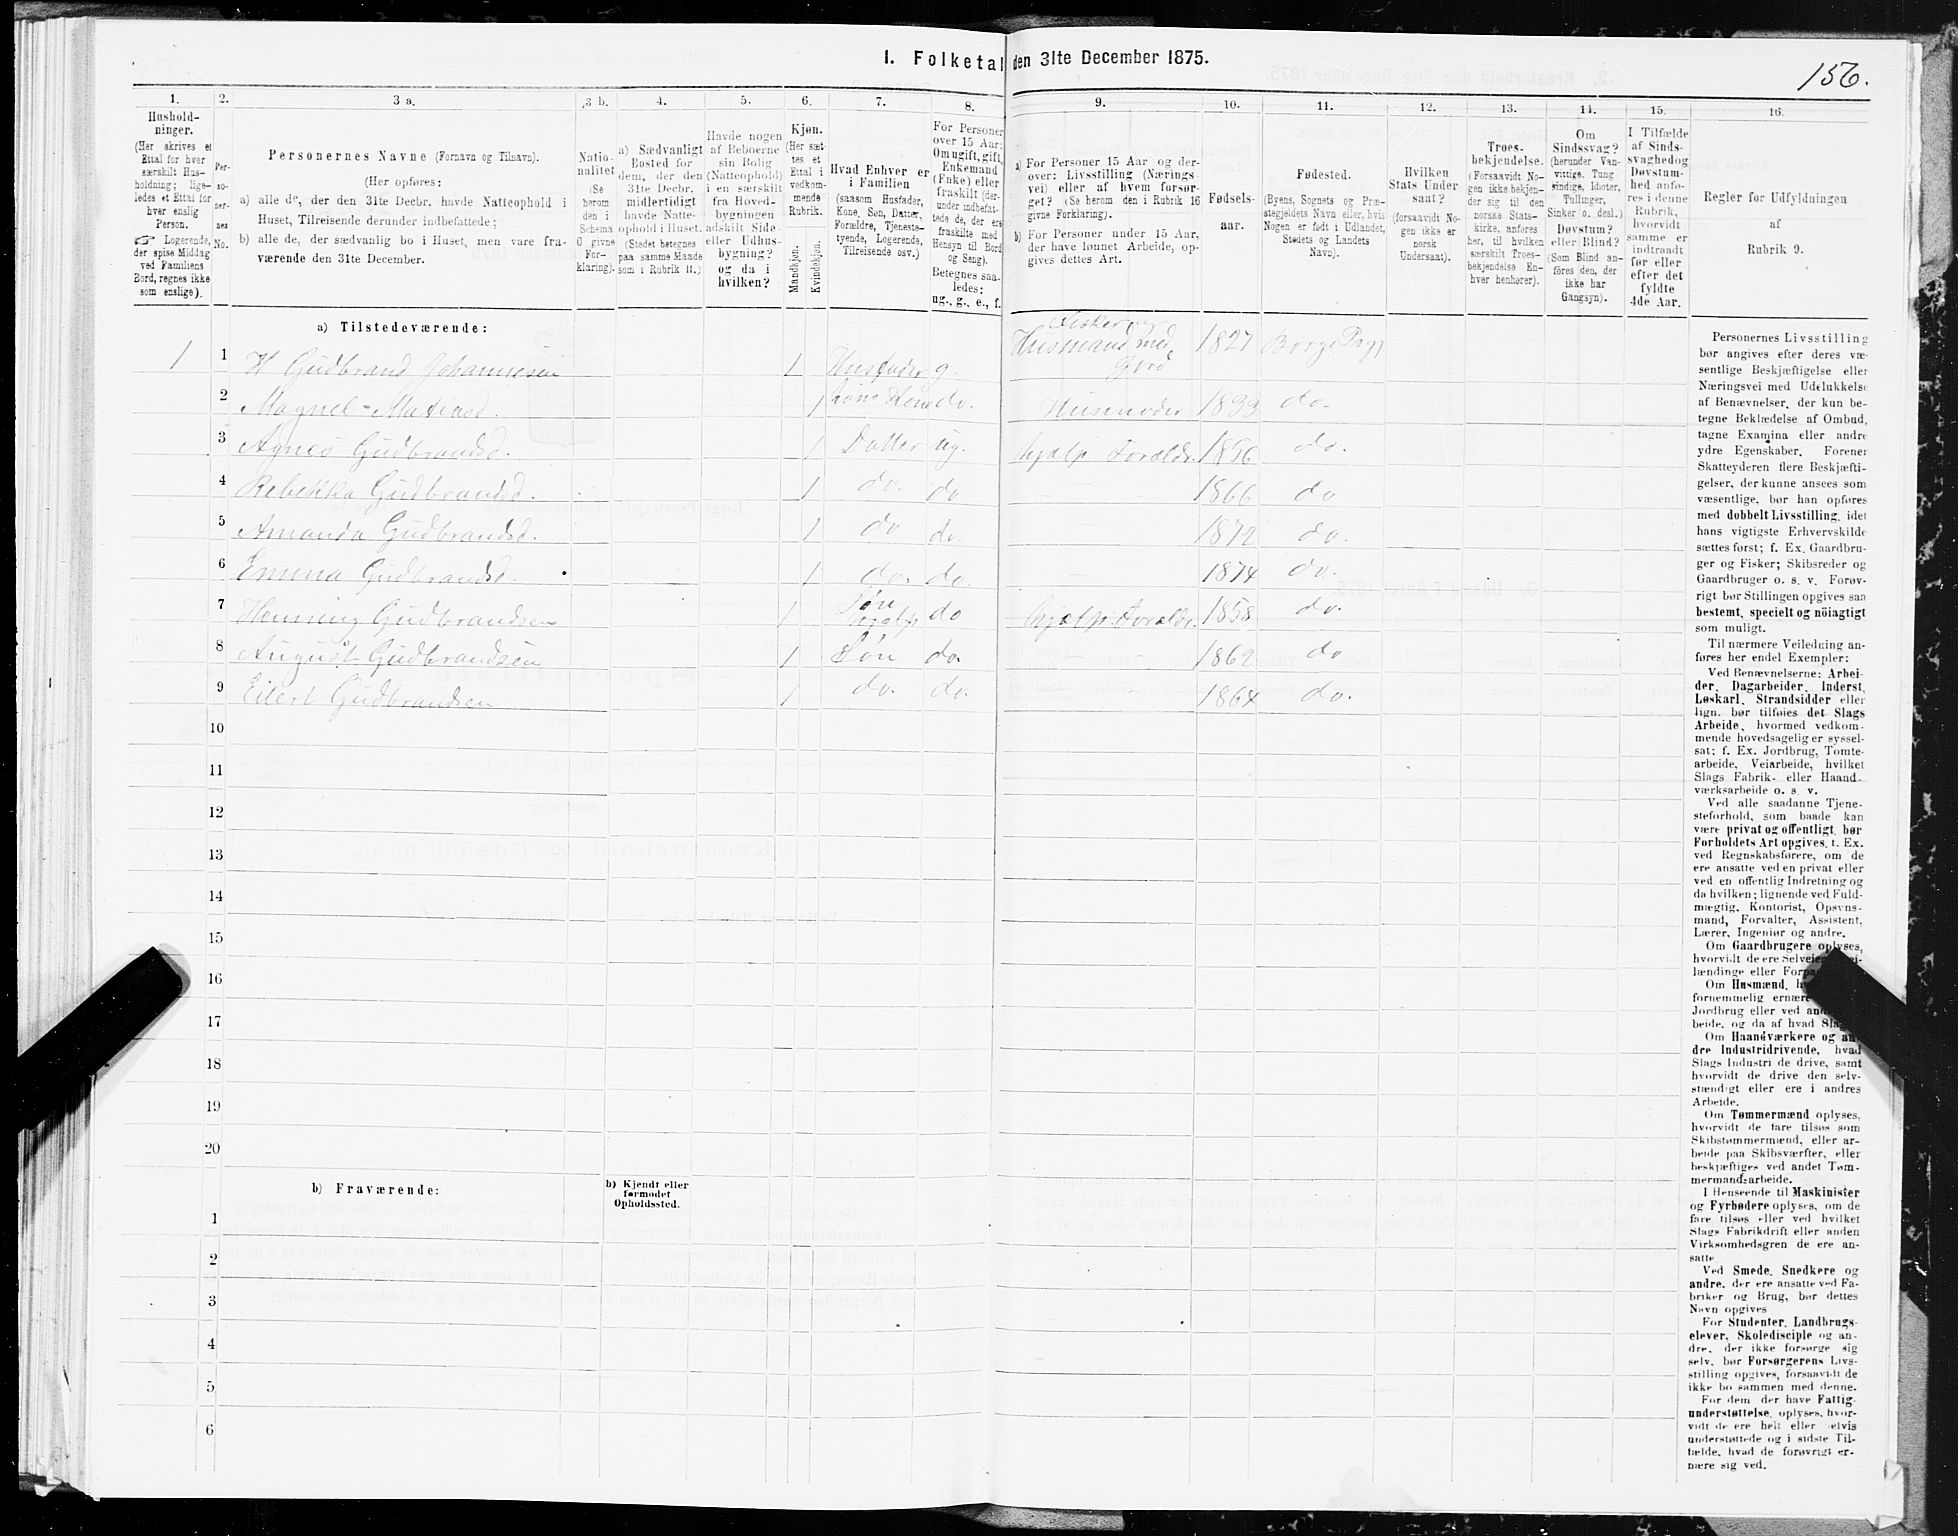 1. Folketal den 31te December 1875.
156.
1.
2.
3 a.
3 b.
4.
5.
6.
7.
8.
9.
10.
11.
12.
13.
14.
15.
16.
Hushold-
ninger.
(Her skrives et
Ettal for hver
særskilt Hus-
holdning; lige-
ledes et Ettal for
hver enslig
Person.
☞ Logerende,
der spise Middag
ved Familiens
Bord, regnes ikke
som enslige).
Per-
so-
ner-
nes
No.
Personernes Navne (Fornavn og Tilnavn).
(Her opføres:
a) alle de, der den 31te Decbr. havde Natteophold i
Huset, Tilreisende derunder indbefattede;
b) alle de, der sædvanlig bo i Huset, men vare fra-
værende den 31te December.
Natio-
nalitet
(Se
herom
den i
Schema
6 givne
For-
klaring).
a) Sædvanligt
Bosted for
dem, der den
31te Decbr.
midlertidigt
havde Natte-
ophold i Huset.
(Stedet betegnes
paa samme Maade
som i Rubrik 11.)
Havde nogen
af Beboerne
sin Bolig
(Natteophold)
i en særskilt
fra Hoved-
bygningen
adskilt Side-
eller Udhus-
bygning?
og da i
hvilken?
Kjøn.
(Her sæt-
tes et
Ettal i
vedkom-
mende
Rubrik.
Mandkjøn.
Kvindekjøn.
Hvad Enhver er
i Familien
(saasom Husfader,
Kone, Søn, Datter,
Forældre, Tjeneste-
tyende, Logerende,
Tilreisende osv.)
For Personer
over 15 Aar:
Om ugift, gift,
Enkemand
(Enke) eller
fraskilt (der-
under indbefat-
tede de, der ere
fraskilte med
Hensyn til Bord
og Seng).
Betegnes saa-
ledes:
ug., g., e., f.
a) For Personer 15 Aar og der-
over: Livsstilling (Nærings-
vei) eller af hvem forsør-
get? (Se herom den i Rubrik 16
givne Forklaring).
b) For Personer under 15 Aar,
der have lønnet Arbeide, op-
gives dettes Art.
Fødsels-
aar.
Fødested.
(Byens, Sognets og Præ-
stegjeldets Navn eller, hvis
Nogen er født i Udlandet,
Stedets og Landets
Navn).
Hvilken
Stats Under
saat?
(forsaavidt No-
gen ikke er
norsk
Undersaat).
Troes-
bekjendelse.
(Forsaavidt No-
gen ikke bekjen-
der sig til den
norske Stats-
kirke, anføres
her, til hvilken
særskilt Troes-
bekjendelse En-
hver henhører).
Om
Sindssvag?
(herunder Van-
vittige. Tung-
sindige, Idioter,
Tullinger,
Sinker o. desl.)
Døvstum?
eller Blind?
(Som Blind an-
føres den, der
ikke har
Gangsyn).
I Tilfælde
af Sinds-
svaghed og
Døvstum-
hed anfø-
res i denne
Rubrik,
hvorvidt
samme er
indtraadt
før eller
efter det
fyldte
4de Aar.
Regler for Udfyldningen
af
Rubrik 9.
a) Tilstedeværende:
1 1 H Gudbrand Johannesen 1 Husfader g. Fisker og Husmand med Jord 1827 Borge Pregj
2 Magnel-Matiasd. 1 hans Kone do. Husmoder 1833 do.
3 Agnes Gudbrandsd. 1 Datter ug. hjælp Forældr. 1856 do.
4 Rebekka Gudbrandsd. 1 do. do 1866 do
5 Amanda Gudbrandsd. 1 do do. 1872 do.
6 Emma Gudbrandsd. 1 do. do. 1874 do.
7 Henning Gudbrandsen 1 Søn hjælp do hjælp Forældr. 1858 do.
8 August Gudbrandsen 1 Søn do. 1862 do
9 Eilert Gudbrandsen 1 do. do. 1864 do.
10
11
12
13
14
15
16
17
18
19
20
b) Fraværende:
b) Kjendt eller
formodet
Opholdssted.
1
2
3
4
5
6
Personernes Livsstilling
bør angives efter deres væ-
sentlige Beskjæftigelse eller
Næringsvei med Udelukkelse
af Benævnelser, der kun be-
tegne Beklædelse af Ombud,
tagne Examina eller andre
ydre Egenskaber. Forener
Skatteyderen flere Beskjæfti-
gelser, der kunne ansees som
væsentlige, bør han opføres
med dobbelt Livsstilling, idet
hans vigtigste Erhvervskilde
sættes først; f. Ex. Gaardbru-
ger og Fisker; Skibsreder og
Gaardbruger o. s. v. Forøv-
rigt bør Stillingen opgives saa
bestemt, specielt og nöiagtigt
som muligt.
Til nærmere Veiledning an-
føres her endel Exempler:
Ved Benævnelserne: Arbei-
der, Dagarbeider, Inderst,
Løskarl, Strandsidder eller
lign. bør tilføies det Slags
Arbeide, hvormed vedkom-
mende hovedsagelig er syssel-
sat; f. Ex. Jordbrug, Tomte-
arbeide, Veiarbeide, hvilket
Slags Fabrik- eller Haand-
værksarbeide o. s. v.
Ved alle saadanne Tjene-
steforhold, som baade kan
være privat og offentligt, bør
Forholdets Art opgives, t. Ex.
ved Regnskabsførere, om de
ere ansatte ved en privat eller
ved en offentlig Indretning og
da hvilken; lignende ved Fuld-
mægtig, Kontorist, Opsyns-
mand, Forvalter, Assistent,
Lærer, Ingeniør og andre.
Om Gaardbrugere oplyses,
hvorvidt de ere Selveiere,
lændinge eller
Om Husmænd,
fornemmelig
Jordbrug eller ved
beide, og da af hvad
Om Haandværkere og an-
dre Industridrivende, hvad
Slags Industri de drive, samt
hvorvidt de drive den selv-
stændigt eller ere i andres
Arbeide.
Om Tømmermænd oplyses,
hvorvidt de fare tilsøs som
Skibstømmermænd, eller ar-
beide paa Skibsværfter, eller
beskjæftiges ved andet Tøm-
mermandsarbeide.
I Henseende til Maskinister
og Fyrbødere oplyses, om de
fare tilsøs eller ved hvilket
Slags Fabrikdrift eller anden
Virksomhedsgren de ere an-
satte.
Ved Smede, Snedkere og
andre, der ere ansatte ved Fa-
briker og Brug, bør dettes
Navn opgives
For Studenter, Landbrugs-
elever, Skoledisciple og an-
dre, der ikke forsørge sig
selv, bør Forsørgerens Livs-
stilling opgives, forsaavidt de
ikke bo sammen med denne.
For dem der have Fattig-
understøttelse, oplyses, hvor-
vidt de ere helt eller delvis
understøttede og i sidste Til-
fælde, hvad de forøvrigt er-
nære sig ved.